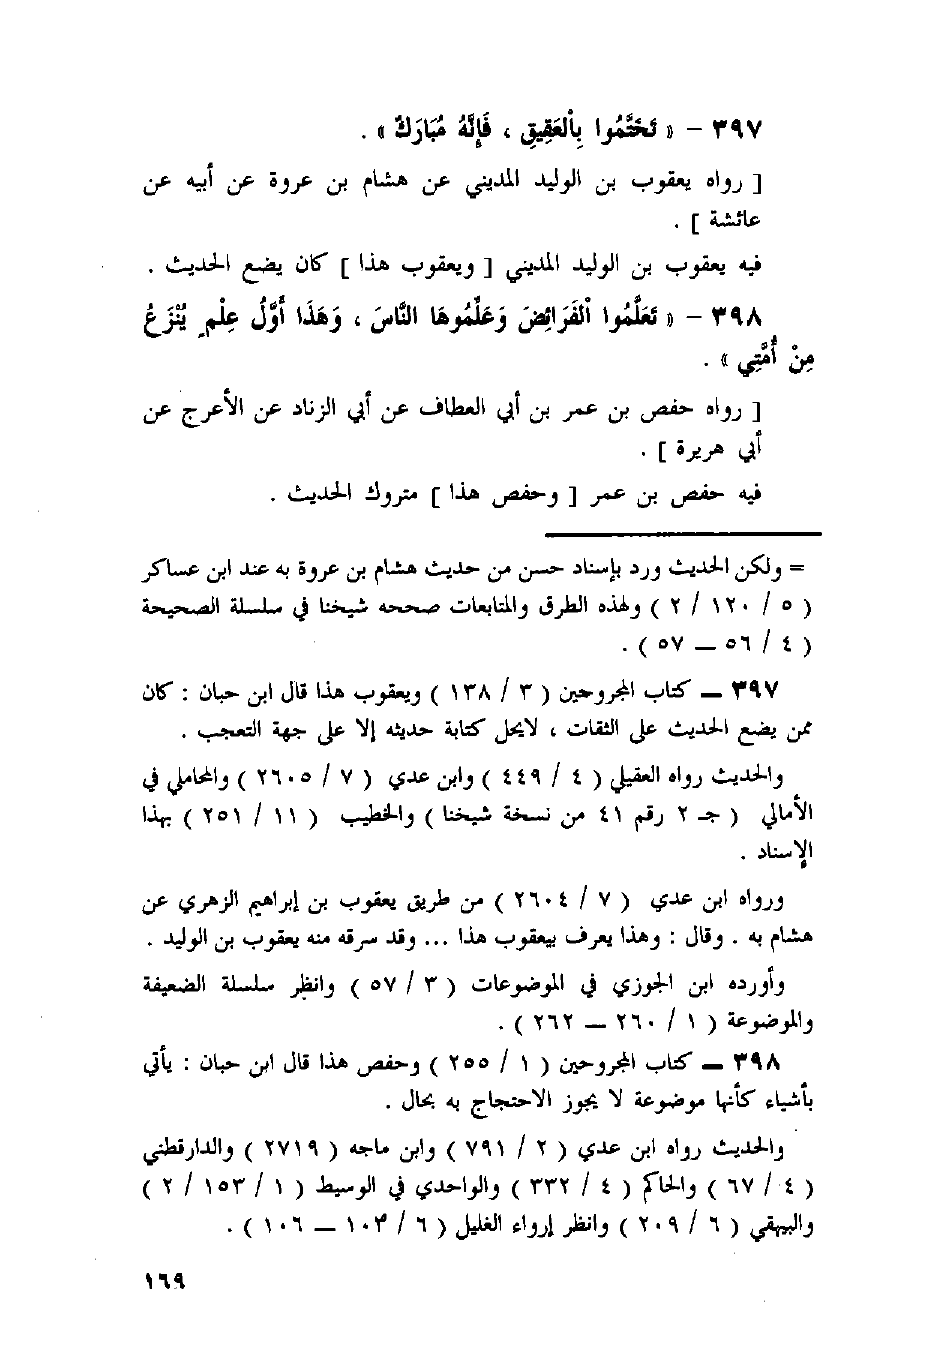 ٣٩٧ - « تَخَتَّمُوا بِالْعَقِيقِ ، فَإِنَّهُ مُبَارَكٌ » .
[ رواه يعقوب بن الوليد المديني عن هشام بن عروة عن أبيه عن
عائشة ] .
فيه يعقوب بن الوليد المديني [ ويعقوب هذا ] كان يضع الحديث .
٣٩٨ - « تَعَلَّمُوا الْفَرَائِضَ وَعَلِّمُوهَا النَّاسَ ، وَهَذَا أَوَّلُ عِلْمٍ يُنْزَعُ
مِنْ أُمَّتِي » .
[ رواه حفص بن عمر بن أبي العطاف عن أبي الزناد عن الأعرج عن
أبي هريرة ] .
فيه حفص بن عمر [ وحفص هذا ] متروك الحديث .
= ولكن الحديث ورد بإسناد حسن من حديث هشام بن عروة به عند ابن عساكر
( ٥ / ١٢٠ / ٢ ) ولهذه الطرق والمتابعات صححه شيخنا في سلسلة الصحيحة
( ٤ / ٥٦ — ٥٧ ) .
٣٩٧ — كتاب المجروحين ( ٣ / ١٣٨ ) ويعقوب هذا قال ابن حبان : كان
ممن يضع الحديث على الثقات ، لايحل كتابة حديثه إلا على جهة التعجب .
والحديث رواه العقيلي ( ٤ / ٤٤٩ ) وابن عدي ( ٧ / ٢٦٠٥ ) والمحاملي في
الأمالي ( جـ ٢ رقم ٤١ من نسخة شيخنا ) والخطيب ( ١١ / ٢٥١ ) بهذا
الإسناد .
ورواه ابن عدي ( ٧ / ٢٦٠٤ ) من طريق يعقوب بن إبراهيم الزهري عن
هشام به . وقال : وهذا يعرف بيعقوب هذا ... وقد سرقه منه يعقوب بن الوليد .
وأورده ابن الجوزي في الموضوعات ( ٣ / ٥٧ ) وانظر سلسلة الضعيفة
والموضوعة ( ١ / ٢٦٠ — ٢٦٢ ) .
٣٩٨ — كتاب المجروحين ( ١ / ٢٥٥ ) وحفص هذا قال ابن حبان : يأتي
بأشياء كأنها موضوعة لا يجوز الاحتجاج به بحال .
والحديث رواه ابن عدي ( ٢ / ٧٩١ ) وابن ماجه ( ٢٧١٩ ) والدارقطني
( ٤ / ٦٧ ) والحاكم ( ٤ / ٣٣٢ ) والواحدي في الوسيط ( ١ / ١٥٣ / ٢ )
والبيهقي ( ٦ / ٢٠٩ ) وانظر إرواء الغليل ( ٦ / ١٠٣ — ١٠٦ ) .
١٦٩